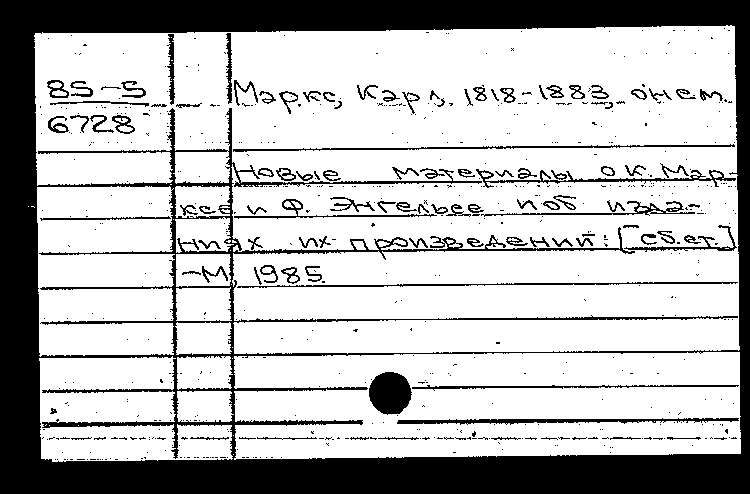 85-5
6728
Маркс, Карл, 1818-1883, о нем.
Новые материалы о К. Мар-
ксе и Ф. Энгельсе и об изда-
ниях их произведений: [сб.ст.]
-М., 1985.